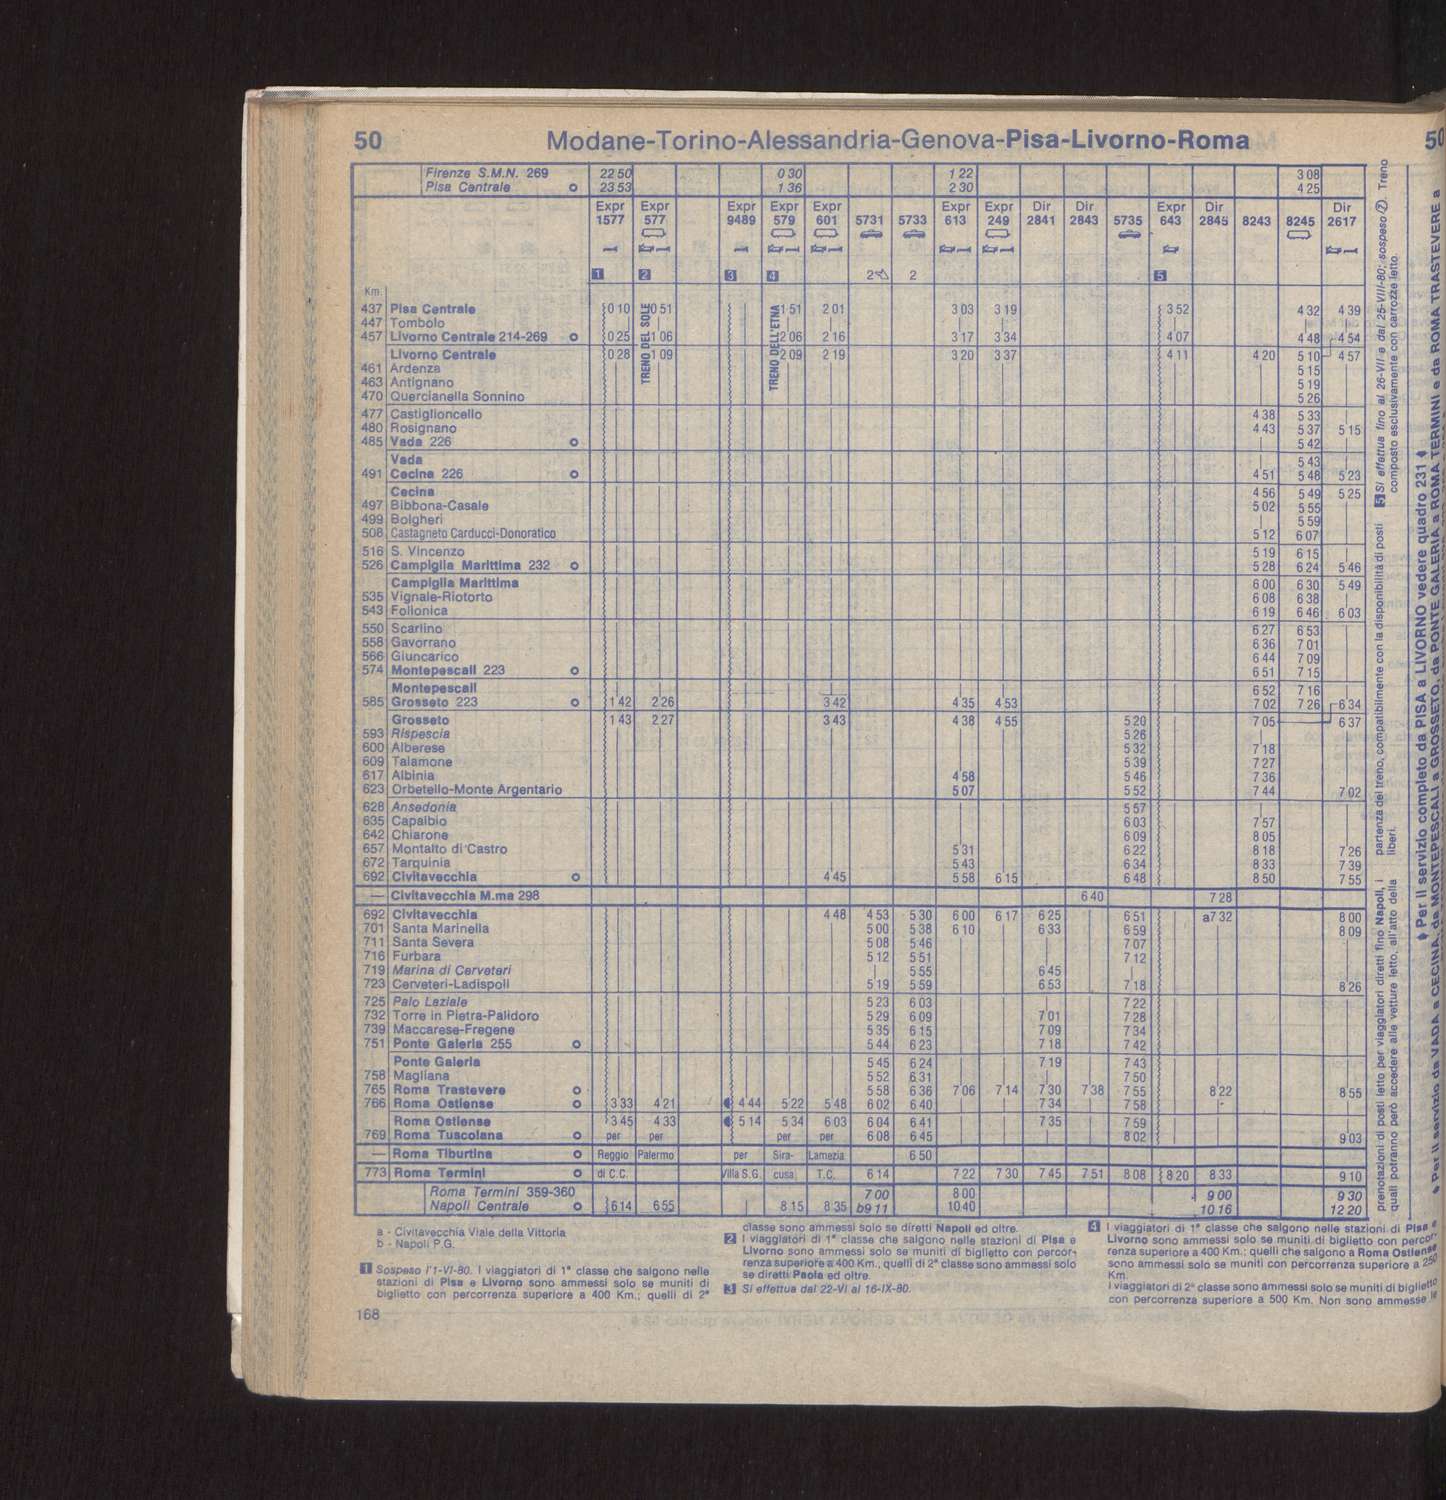 50 Modane-Torino-Alessandria-Genova-Pisa-Livorno-Roma 50
Firenze S.M.N. 269 22 50 0 30 1 22 3 08
Pisa Centrale 23 53 1 36 2 30 4 25
Expr Expr Expr Expr Expr Expr Expr Dir Dir Expr Dir Dir
1577 577 9489 579 601 5731 5733 613 249 2841 2843 5735 643 2845 8243 8245 2617
1 2 3 4 2 2 5
Km.
TRENO DEL SOLE
TRENO DELL'ETNA
437 Pisa Centrale 0 10 0 51 1 51 2 01 3 03 3 19 3 52 4 32 4 39
447 Tombolo
457 Livorno Centrale 214-269 0 25 1 06 2 06 2 16 3 17 3 34 4 07 4 48 4 54
Livorno Centrale 0 28 1 09 2 09 2 19 3 20 3 37 4 11 4 20 5 10 4 57
461 Ardenza 5 15
463 Antignano 5 19
470 Quercianella Sonnino 5 26
477 Castiglioncello 4 38 5 33
480 Rosignano 4 43 5 37 5 15
485 Vada 226 5 42
Vada 5 43
491 Cecina 226 4 51 5 48 5 23
Cecina 4 56 5 49 5 25
497 Bibbona-Casale 5 02 5 55
499 Bolgheri 5 59
508 Castagneto Carducci-Donoratico 5 12 6 07
516 S. Vincenzo 5 19 6 15
526 Campiglia Marittima 232 5 28 6 24 5 46
Campiglia Marittima 6 00 6 30 5 49
535 Vignale-Riotorto 6 08 6 38
543 Follonica 6 19 6 46 6 03
550 Scarlino 6 27 6 53
558 Gavorrano 6 36 7 01
566 Giuncarico 6 44 7 09
574 Montepescali 223 6 51 7 15
Montepescali 6 52 7 16
585 Grosseto 223 1 42 2 26 3 42 4 35 4 53 7 02 7 26 6 34
Grosseto 1 43 2 27 3 43 4 38 4 55 5 20 7 05 6 37
593 Rispescia 5 26
600 Alberese 5 32 7 18
609 Talamone 5 39 7 27
617 Albinia 4 58 5 46 7 36
623 Orbetello-Monte Argentario 5 07 5 52 7 44 7 02
628 Ansedonia 5 57
635 Capalbio 6 03 7 57
642 Chiarone 6 09 8 05
657 Montalto di Castro 5 31 6 22 8 18 7 26
672 Tarquinia 5 43 6 34 8 33 7 39
692 Civitavecchia 4 45 5 58 6 15 6 48 8 50 7 55
— Civitavecchia M.ma 298 6 40 7 28
692 Civitavecchia 4 48 4 53 5 30 6 00 6 17 6 25 6 51 a7 32 8 00
701 Santa Marinella 5 00 5 38 6 10 6 33 6 59 8 09
711 Santa Severa 5 08 5 46 7 07
716 Furbara 5 12 5 51 7 12
719 Marina di Cerveteri 5 55 6 45
723 Cerveteri-Ladispoli 5 19 5 59 6 53 7 18 8 26
725 Palo Laziale 5 23 6 03 7 22
732 Torre in Pietra-Palidoro 5 29 6 09 7 01 7 28
739 Maccarese-Fregene 5 35 6 15 7 09 7 34
751 Ponte Galeria 255 5 44 6 23 7 18 7 42
Ponte Galeria 5 45 6 24 7 19 7 43
758 Magliana 5 52 6 31 7 50
765 Roma Trastevere 5 58 6 36 7 06 7 14 7 30 7 38 7 55 8 22 8 55
766 Roma Ostiense 3 33 4 21 4 44 5 22 5 48 6 02 6 40 7 34 7 58
Roma Ostiense 3 45 4 33 5 14 5 34 6 03 6 04 6 41 7 35 7 59
769 Roma Tuscolana per per per per 6 08 6 45 8 02 9 03
— Roma Tiburtina Reggio Palermo per Sira- Lamezia 6 50
773 Roma Termini di C.C. Villa S.G. cusa T.C. 6 14 7 22 7 30 7 45 7 51 8 08 8 20 8 33 9 10
Roma Termini 359-360 7 00 8 00 9 00 9 30
Napoli Centrale 6 14 6 55 8 15 8 35 b9 11 10 40 10 16 12 20
a - Civitavecchia Viale della Vittoria
b - Napoli P.G.
1 Sospeso l'1-VI-80. I viaggiatori di 1ª classe che salgono nelle
stazioni di Pisa e Livorno sono ammessi solo se muniti di
biglietto con percorrenza superiore a 400 Km.; quelli di 2ª
classe sono ammessi solo se diretti Napoli ed oltre.
2 I viaggiatori di 1ª classe che salgono nelle stazioni di Pisa e
Livorno sono ammessi solo se muniti di biglietto con percor-
renza superiore a 400 Km., quelli di 2ª classe sono ammessi solo
se diretti Paola ed oltre.
3 Si effettua dal 22-VI al 16-IX-80.
4 I viaggiatori di 1ª classe che salgono nelle stazioni di Pisa e
Livorno sono ammessi solo se muniti di biglietto con percor-
renza superiore a 400 Km.; quelli che salgono a Roma Ostiense
sono ammessi solo se muniti con percorrenza superiore a 250
Km.
I viaggiatori di 2ª classe sono ammessi solo se muniti di biglietto
con percorrenza superiore a 500 Km. Non sono ammesse le
prenotazioni di posti letto per viaggiatori diretti fino Napoli, i
quali potranno però accedere alle vetture letto, all'atto della
partenza del treno, compatibilmente con la disponibilità di posti
liberi.
5 Si effettua fino al 26-VII e dal 25-VIII-80; sospeso 7 Treno
composto esclusivamente con carrozze letto.
Per il servizio completo da PISA a LIVORNO vedere quadro 231
Per il servizio da VADA a CECINA, da MONTEPESCALI a GROSSETO, da PONTE GALERIA a ROMA TERMINI e da ROMA TRASTEVERE a
168